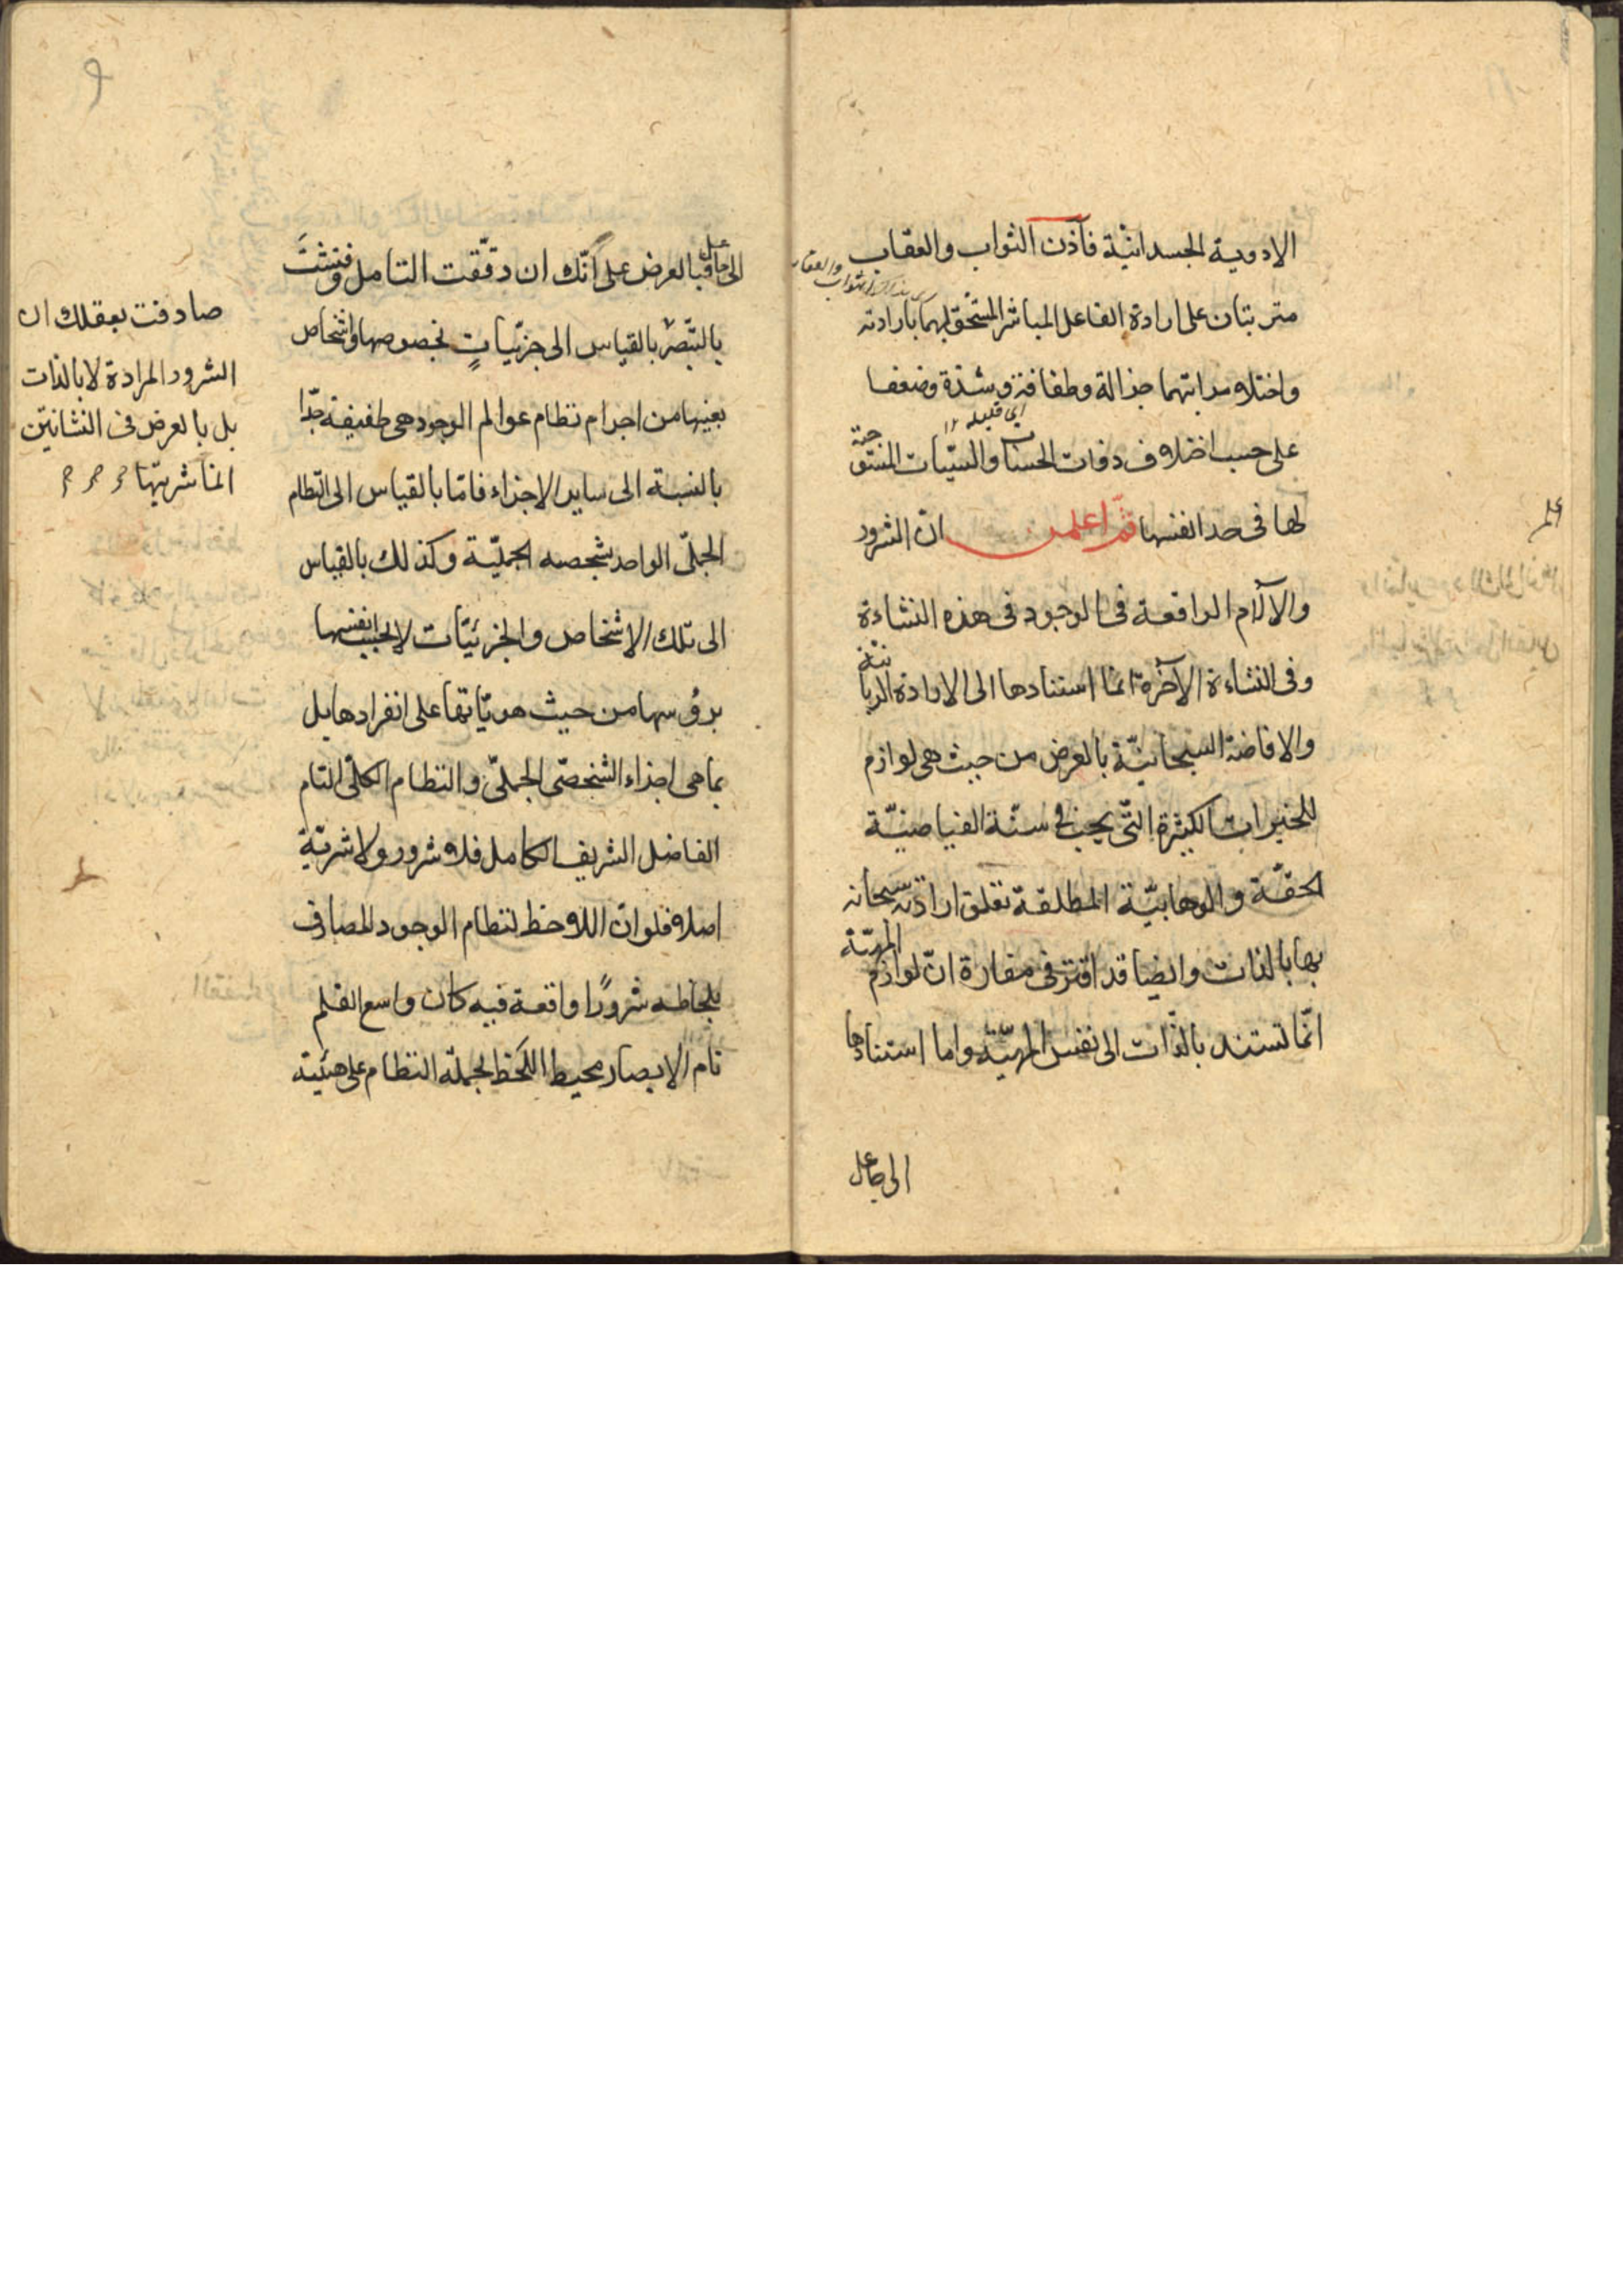 الادوية الجسدانيّة فاذن الثواب والعقاب
والعقاب
مترتبتان على ارادة الفاعل المباشر المستحق لهما بارادته
واختلاف مراتبهما جزالة وطفافة وشدّة وضعفا
اى قليله ١٢
على حسب اختلاف ذوات الحسنات والسيّئات المستوجبة
لها فى حد انفسها ثمّ اعلمن انّ الشرور
علم
والآلام الواقعة فى الوجود فى هذه النشاءة
وفى النشاءة الآخرة انّما استنادها الى الارادة الربانيّة
والافاضة السبحانيّة بالعرض من حيث هى لوازم
للخيرات الكثيرة التّى يجب فى سنّة الفياضيّة
الحقّة والوهابيّة المطلقة تعلق ارادته سبحانه
بها بالذات وايضا قد اقترّ فى مقارّه انّ لوازم المهيّة
انّما تستند بالذّات الى نفس المهيّة واما استنادها
الى جاعل
الى جاعل فبالعرض على انّك ان دقّقت التامل وفتشتَ
بالتبصّر بالقياس الى جزئيّاتٍ بخصوصها واشخاص
بعينها من اجرام نظام عوالم الوجود هى طفيفة جدّا
بالنسبة الى ساير الاجزاء فامّا بالقياس الى النظام
الجملىّ الواحد بشخصه الجمليّة وكذلك بالقياس
الى تلك الاشخاص والجزئيّات لا بحسب انفسها
برؤسها من حيث هويّاتها على انفرادها بل
بما هى اجزاء الشخصّى الجملىّ والنظام الكلّى التام
الفاضل الشريف الكامل فلا شرور ولا شرّيّة
اصلا فلو انّ اللاحظ لنظام الوجود المصادف
بلحاظه شرورًا واقعة فيه كان واسع القلم
تام الابصار محيط اللّحظ لجملة النظام على هيئية
صادفت بعقلك ان
الشرور المرادة لا بالذات
بل بالعرض فى النشاتين
انما شريّتها